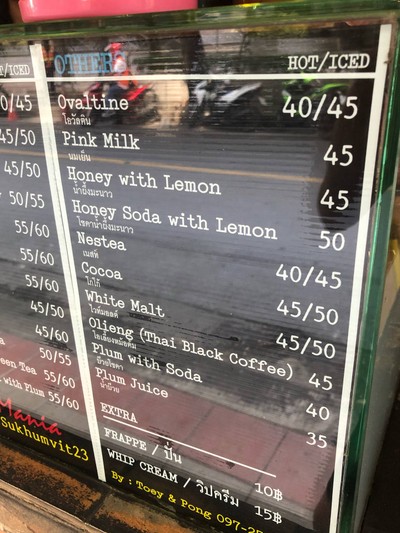 T/ICED
0/45
45/50
45/50
50/55
55/60
55/60
55/60
45/50
45/60
50/55
een Tea 55/60
with Plum 55/60
Mania
Sukhumvit23
OTHERS HOT/ICED
Ovaltine 40/45
โอวัลติน
Pink Milk 45
นมเย็น
Honey with Lemon 45
น้ำผึ้งมะนาว
Honey Soda with Lemon 50
โซดาน้ำผึ้งมะนาว
Nestea 40/45
เนสที
Cocoa 45/50
โกโก้
White Malt 45/50
ไวท์มอลต์
Olieng (Thai Black Coffee) 45
Plum with Soda 40
บ๊วยโซดา
Plum Juice 35
น้ำบ๊วย
EXTRA
FRAPPE / ปั่น 10฿
WHIP CREAM / วิปครีม 15฿
By : Toey & Pong 097-2